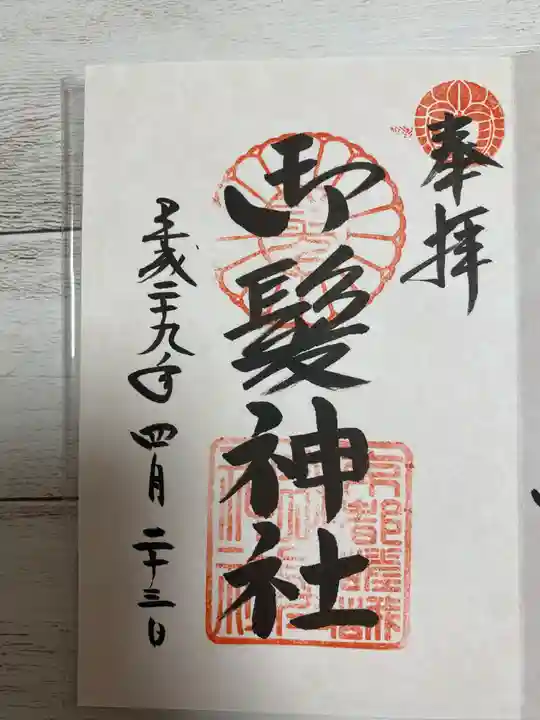 奉拝
御髪神社
平成二十九年四月二十三日